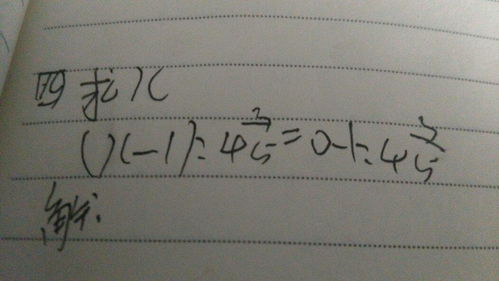 四求x
(x-1):4 3/5=0.1:4 3/5
解: